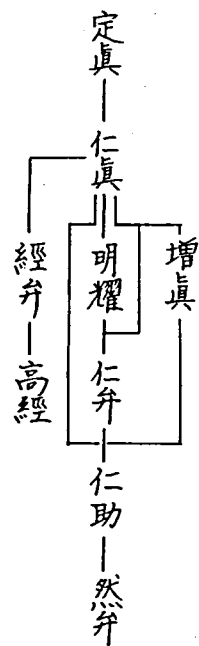 定眞
仁眞
増眞
明耀
仁弁
仁助
然弁
經弁
高經